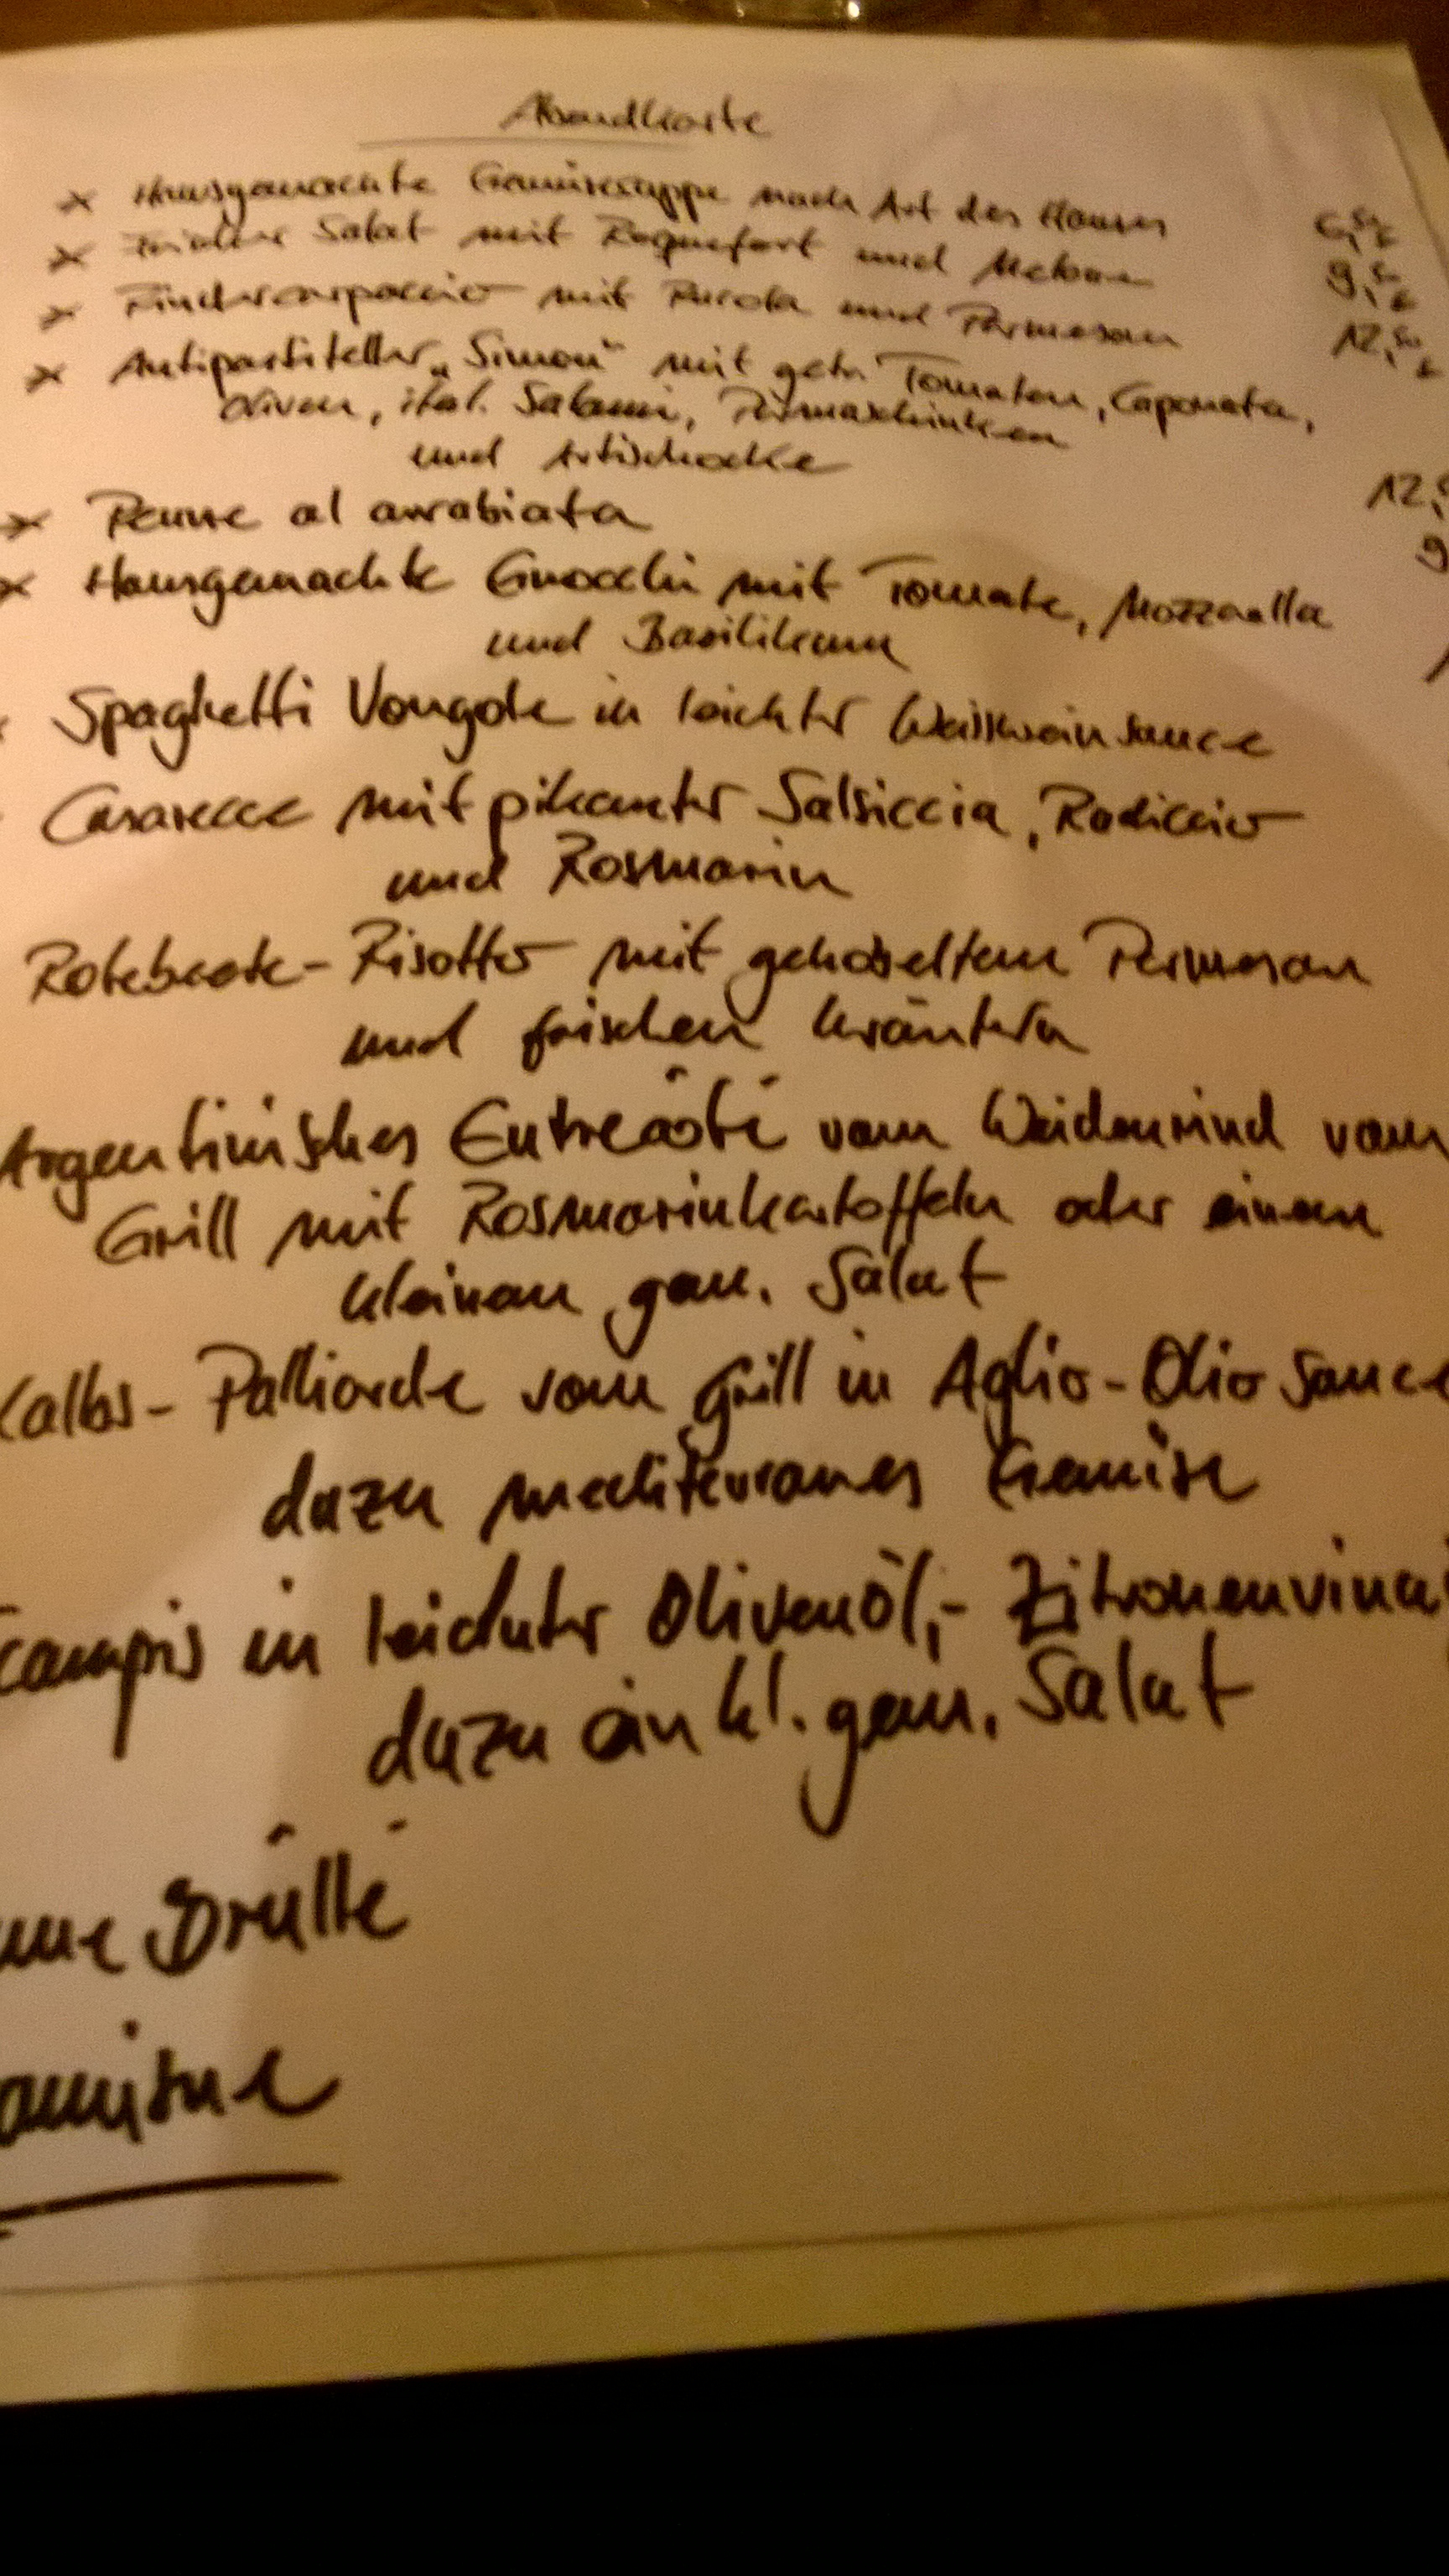 Abendkarte
x Hausgemachte Gemüsesuppe nach Art des Hauses 6,50 €
x Frischer Salat mit Roquefort und Melone 9,50 €
x Rindercarpaccio mit Rucola und Parmesan 12,50 €
x Antipastiteller „Simon" mit getr. Tomaten, Caponata,
Oliven, ital. Salami, Parmaschinken
und Artischocke 12,5
x Penne al arrabiata 9
x Hausgemachte Gnocchi mit Tomate, Mozzarella
und Basilikum
Spaghetti Vongole in leichter Weisswein sauce
Casarecce mit pikanter Salsiccia, Radiccio
und Rosmarin
Rotebeete-Risotto mit gehobeltem Parmesan
und frischen Kräutern
Argentinisches Entrecôté vom Weiderind vom
Grill mit Rosmarinkartoffeln oder einem
kleinen gem. Salat
Kalbs-Palliarde vom Grill in Aglio-Olio Sauce
dazu mediterranes Gemüse
campis in leichter Olivenöl,- Zitronenvinai
dazu ein kl. gem. Salat
me Brûlé
amisue